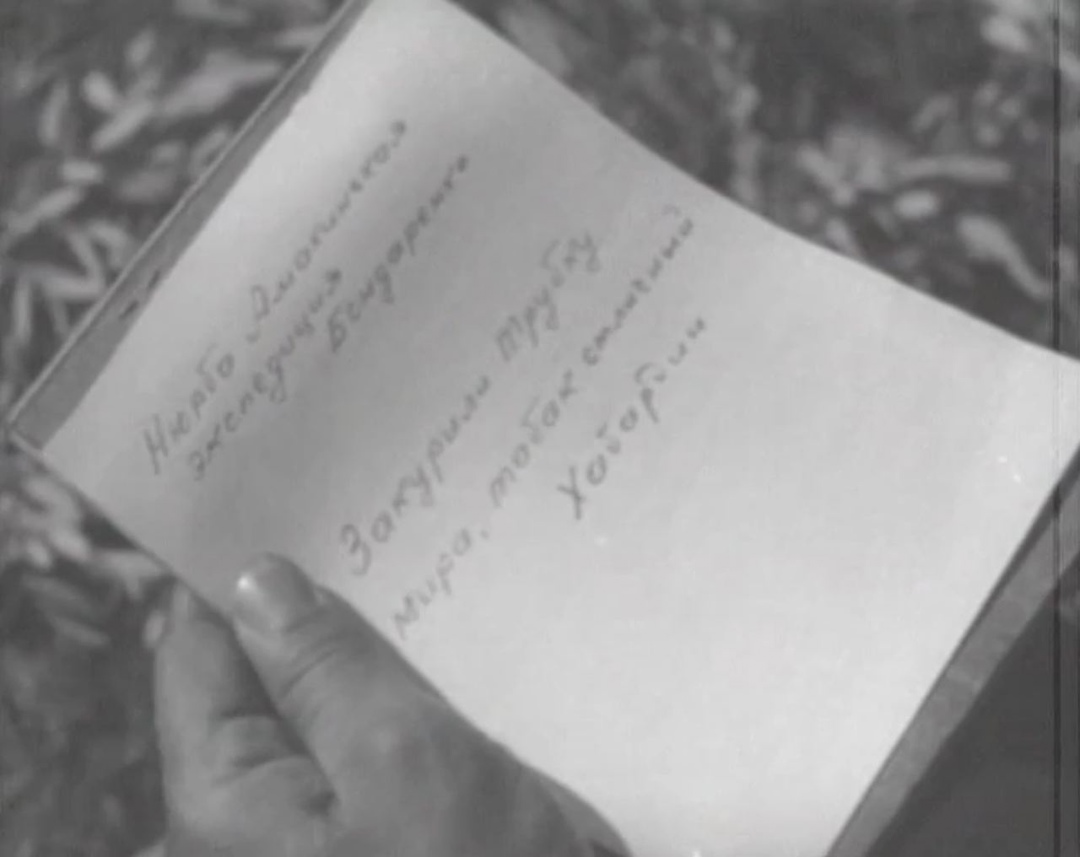 Нюрба Амакинская
экспедиция
Бондаренко
Закурили трубку
мира, табак отличный
Хабардин